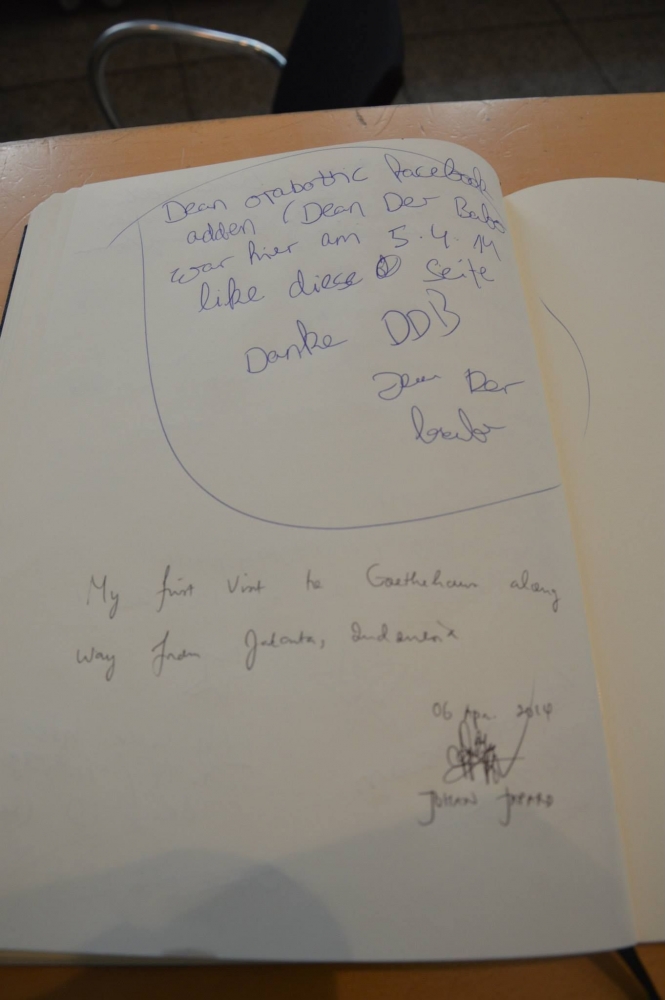 Dean otabothic facebook
adden (Dean Der Babo
war hier am 5.4.14
like diese Seite
Danke DDB
Dean Der
babo
My first visit to Goethehaus along
way from Jakarta, Indonesia
06 Apr. 2014
JOHAN